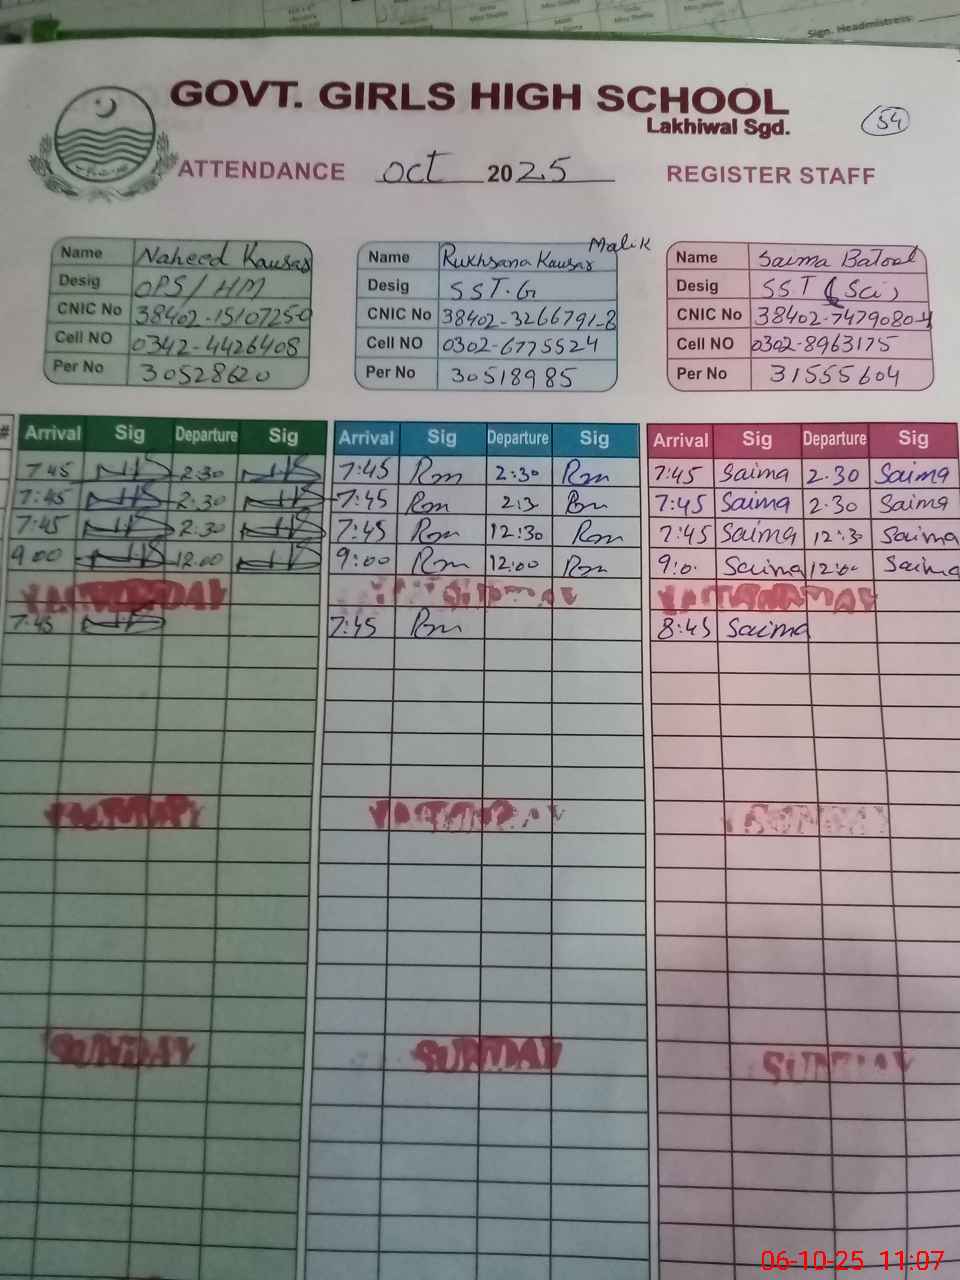 Sign. Headmistress:
GOVT. GIRLS HIGH SCHOOL
Lakhiwal Sgd.
54
ATTENDANCE Oct 2025 REGISTER STAFF
Name Naheed Kausar
Desig OPS/HM
CNIC No 38402-1510725-0
Cell NO 0342-4426408
Per No 30528620
Name Rukhsana Kausar Malik
Desig SST.G
CNIC No 38402-3266791-8
Cell NO 0302-6775524
Per No 30518985
Name Saima Batool
Desig SST (Sci)
CNIC No 38402-7479080-4
Cell NO 0302-8963175
Per No 31555604
# Arrival Sig Departure Sig Arrival Sig Departure Sig Arrival Sig Departure Sig
7:45 2:30 7:45 Rm 2:30 Rm 7:45 Saima 2.30 Saima
7:45 2:30 7:45 Rm 2:3 Rm 7:45 Saima 2:30 Saima
7:45 2:30 7:45 Rm 12:30 Rm 7:45 Saima 12:3 Saima
9:00 12:00 9:00 Rm 12:00 Rm 9:0 Saima 12:00 Saima
7:45 7:45 Rm 8:45 Saima
SUNDAY SUNDAY SUNDAY
06-10-25 11:07